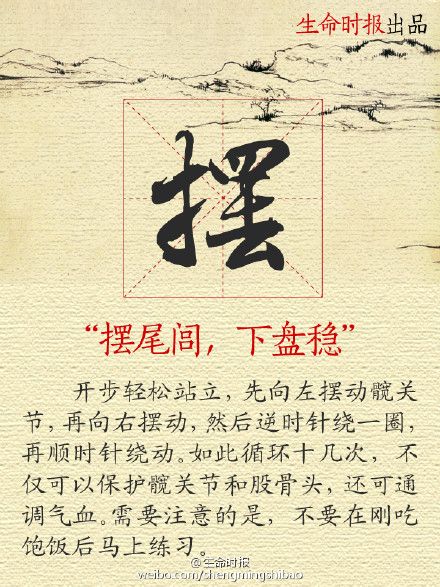 生命时报出品
摆
“摆尾闾，下盘稳”
开步轻松站立，先向左摆动髋关
节，再向右摆动，然后逆时针绕一圈，
再顺时针绕动。如此循环十几次，不
仅可以保护髋关节和股骨头，还可通
调气血。需要注意的是，不要在刚吃
饱饭后马上练习。
@生命时报
weibo.com/shengmingshibao